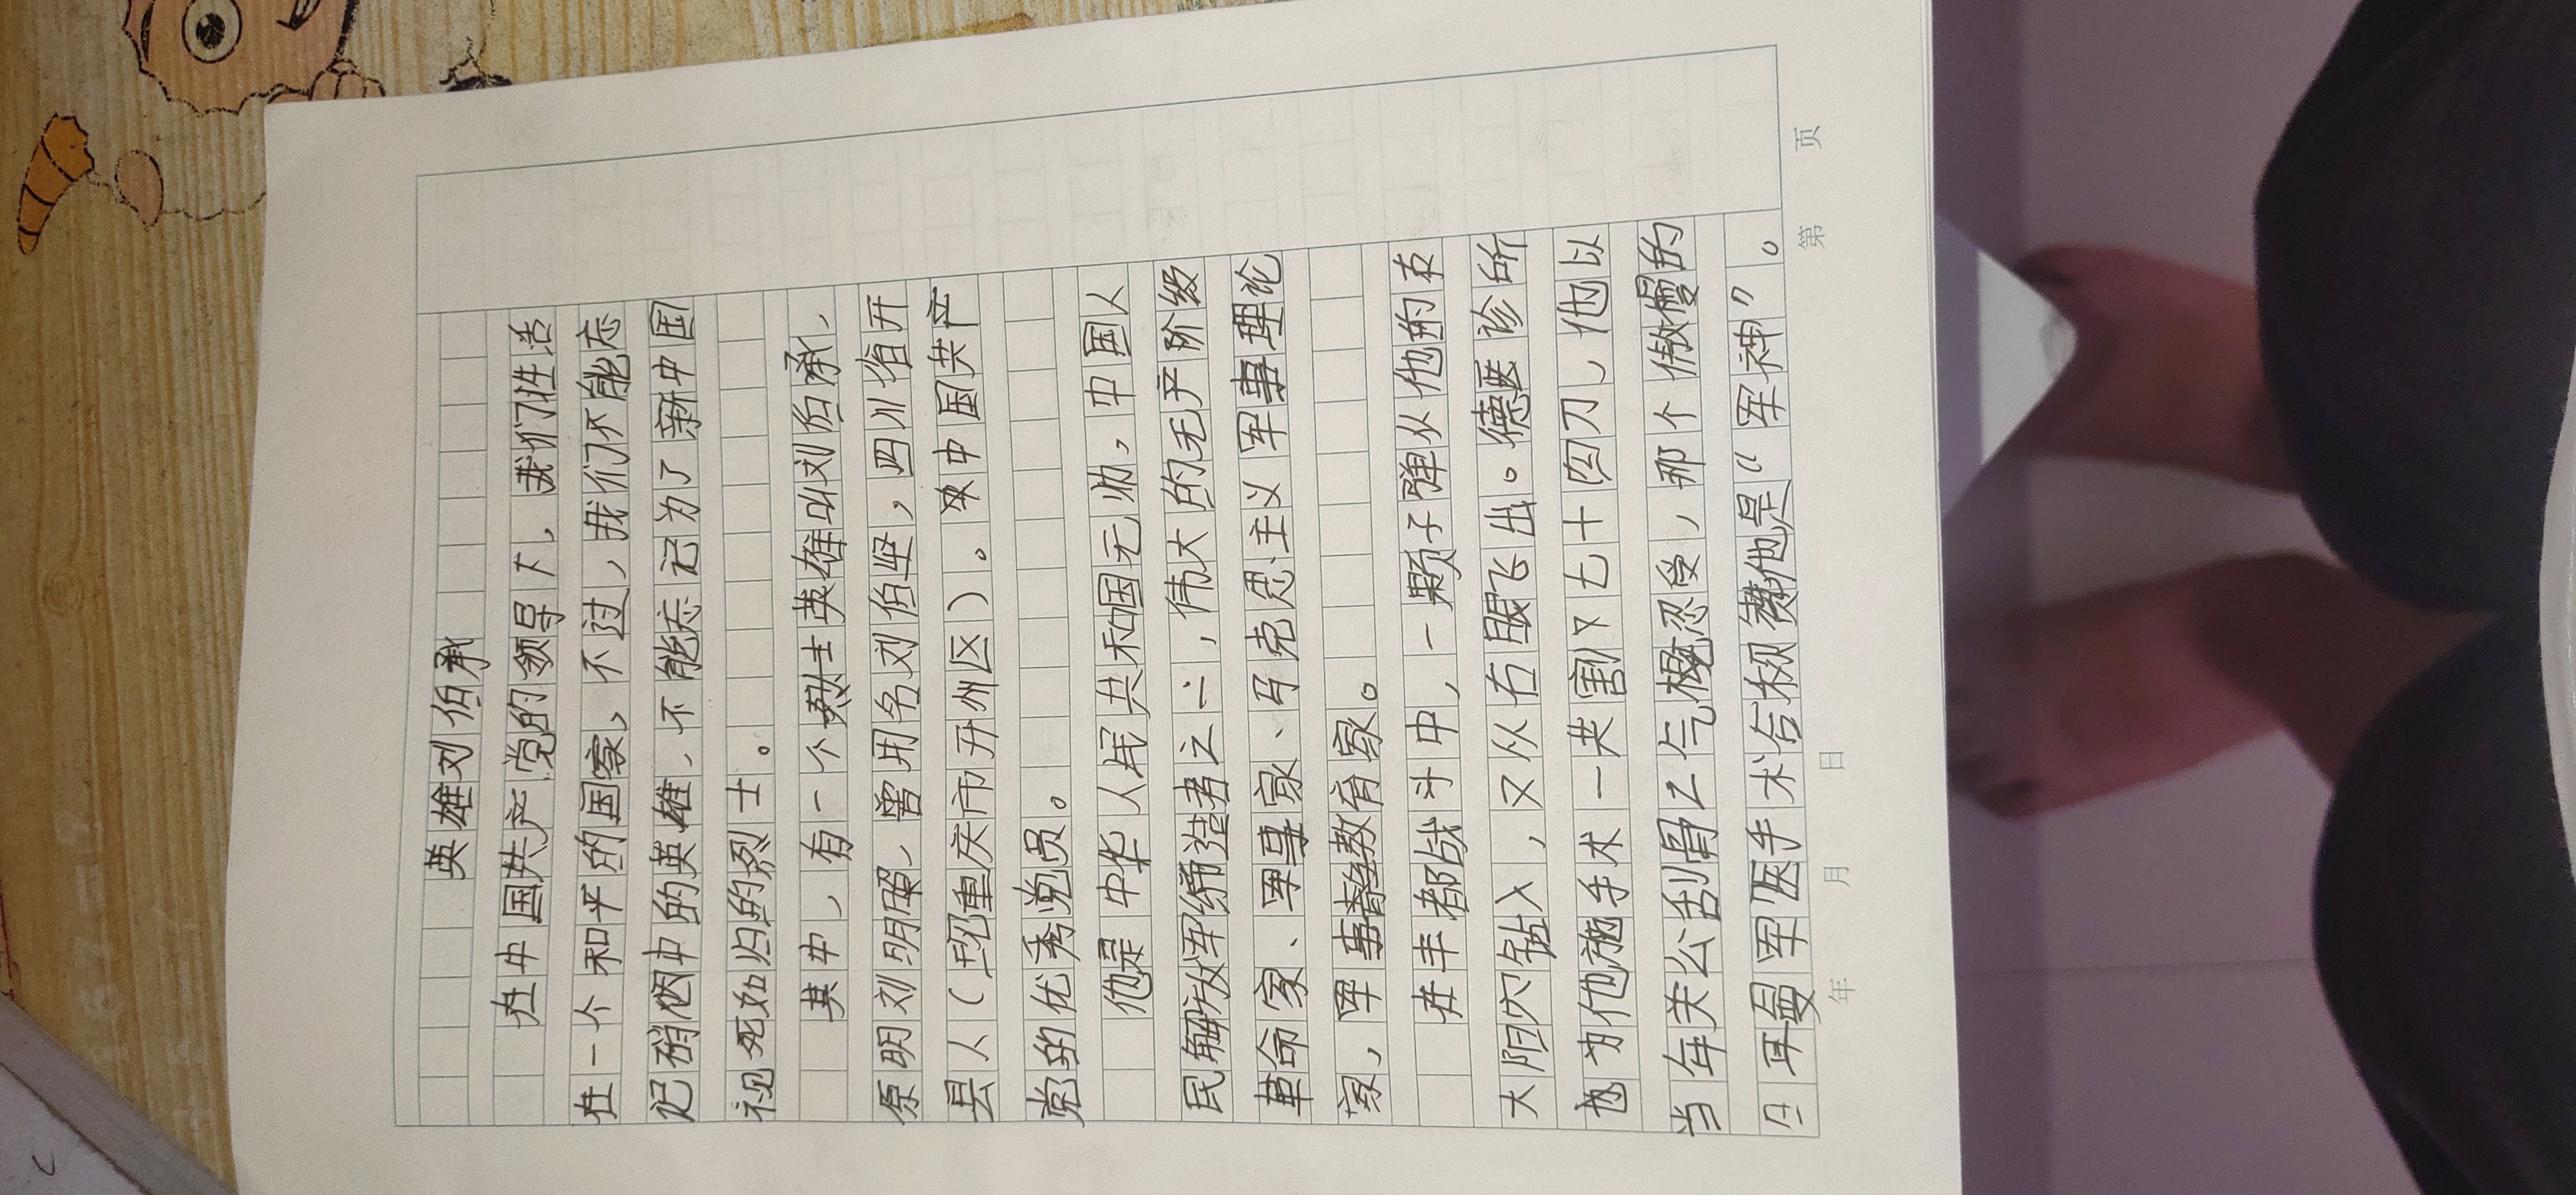 英雄刘伯承
在中国共产党的领导下,我们生活
在一个和平的国家,不过,我们不能忘
记硝烟中的英雄,不能忘记为了新中国
视死如归的烈士。
其中,有一个烈士英雄叫刘伯承,
原明刘明昭、曾用名刘伯坚,四川省开
县人(现重庆市开州区)。中国共产
党的优秀党员。
他是中华人民共和国元帅,中国人
民解放军缔造者之一,伟大的无产阶级
革命家、军事家、马克思主义军事理论
家,军事教育家。
丰都战斗中,一颗子弹从他的
大阳穴钻入,又从右眼飞出。德医诊所
为他施手术一共割了七十四刀,他以
当年关公刮骨之气概忍受,那个傲慢的
日耳曼军医手术后称赞他是“军神”。
年 月 日 第 页